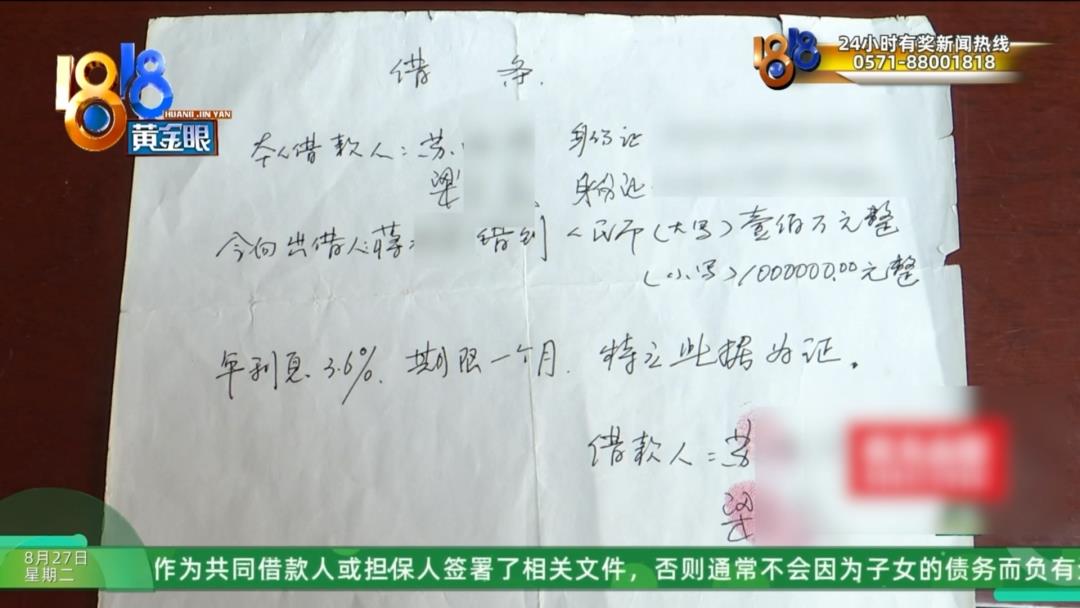 1818
HUANG JIN YAN
黄金眼
24小时有奖新闻热线
0571-88001818
借 条.
本人借款人:苏 身份证
梁 身份证
今向出借人蒋 借到 人民币(大写)壹佰万元整
(小写)1000000.00元整
年利息3.6%. 期限一个月. 特立此据为证。
借款人:苏
梁
8月27日
星期二
作为共同借款人或担保人签署了相关文件,否则通常不会因为子女的债务而负有